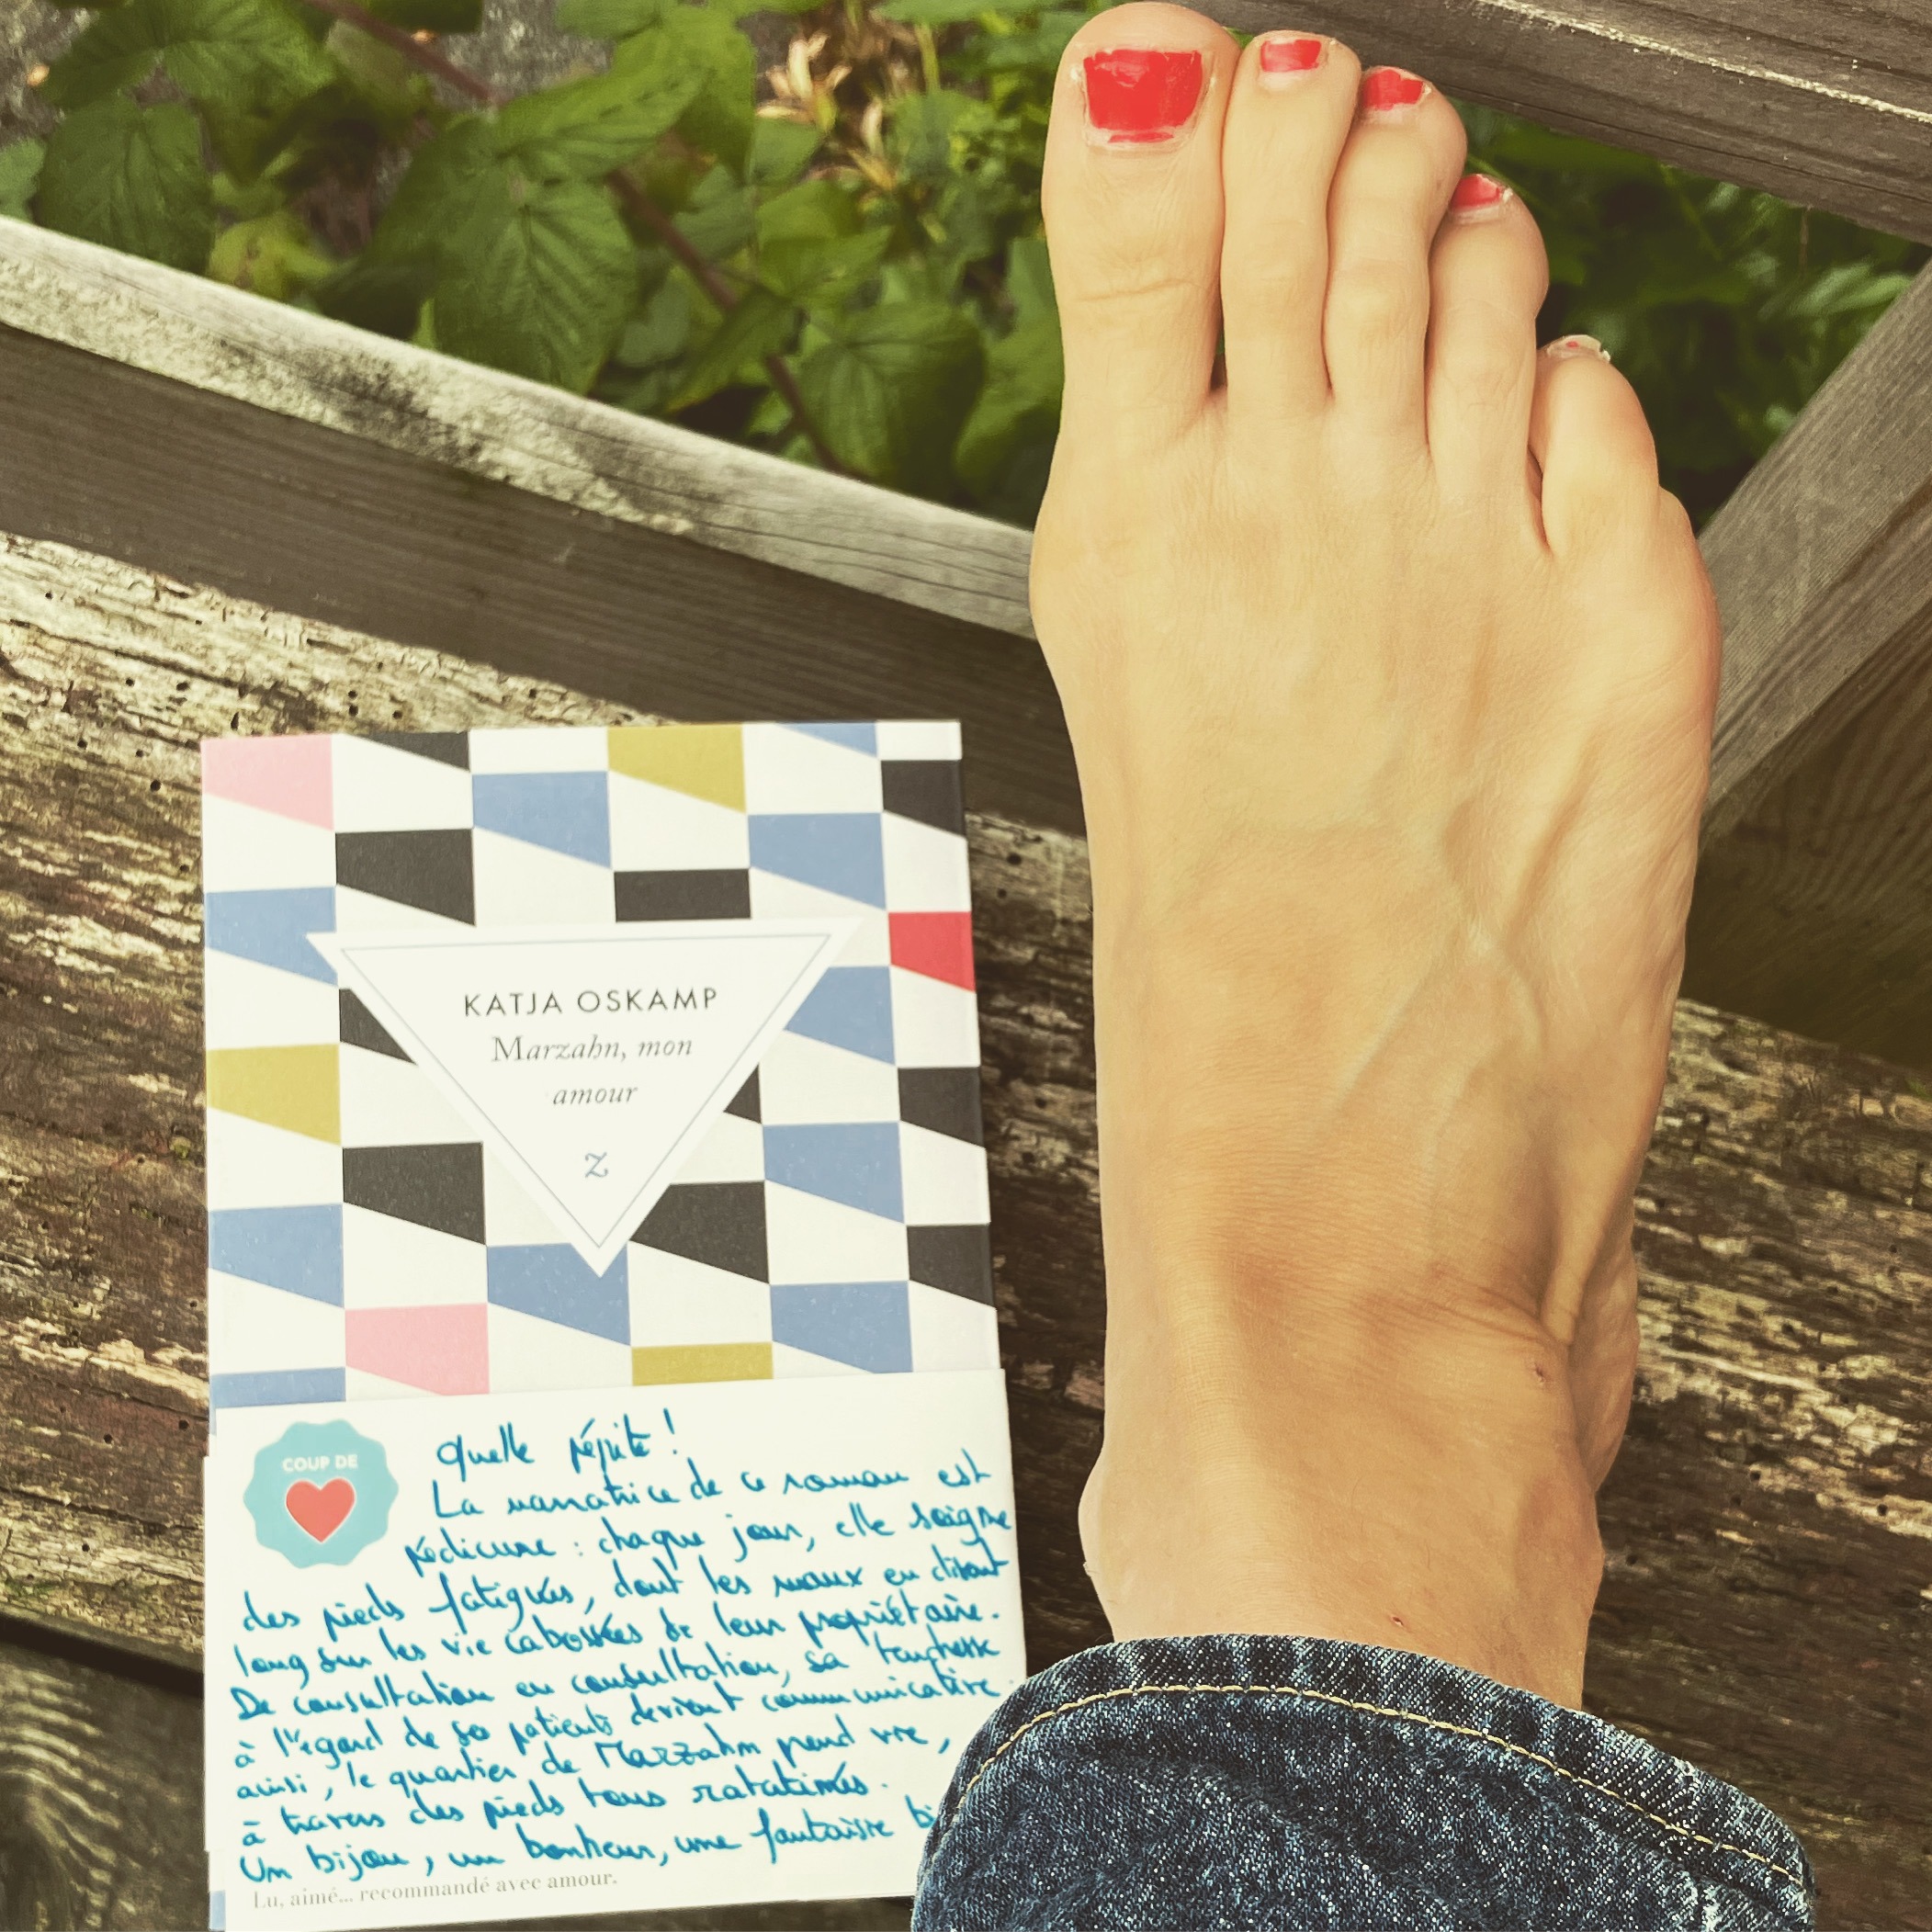 KATJA OSKAMP
Marzahn, mon
amour
Z
COUP DE
Quelle pépite !
La narratrice de ce roman est
pédicure : chaque jour, elle soigne
des pieds fatigués, dont les maux en disent
long sur les vie cabossées de leur propriétaire.
De consultation en consultation, sa tendresse
à l'égard de ses patients devient communicative.
ainsi, le quartier de Marzahn prend vie,
à travers des pieds tous ratatinés.
Un bijou, un bonheur, une fantaisie
Lu, aimé... recommandé avec amour.